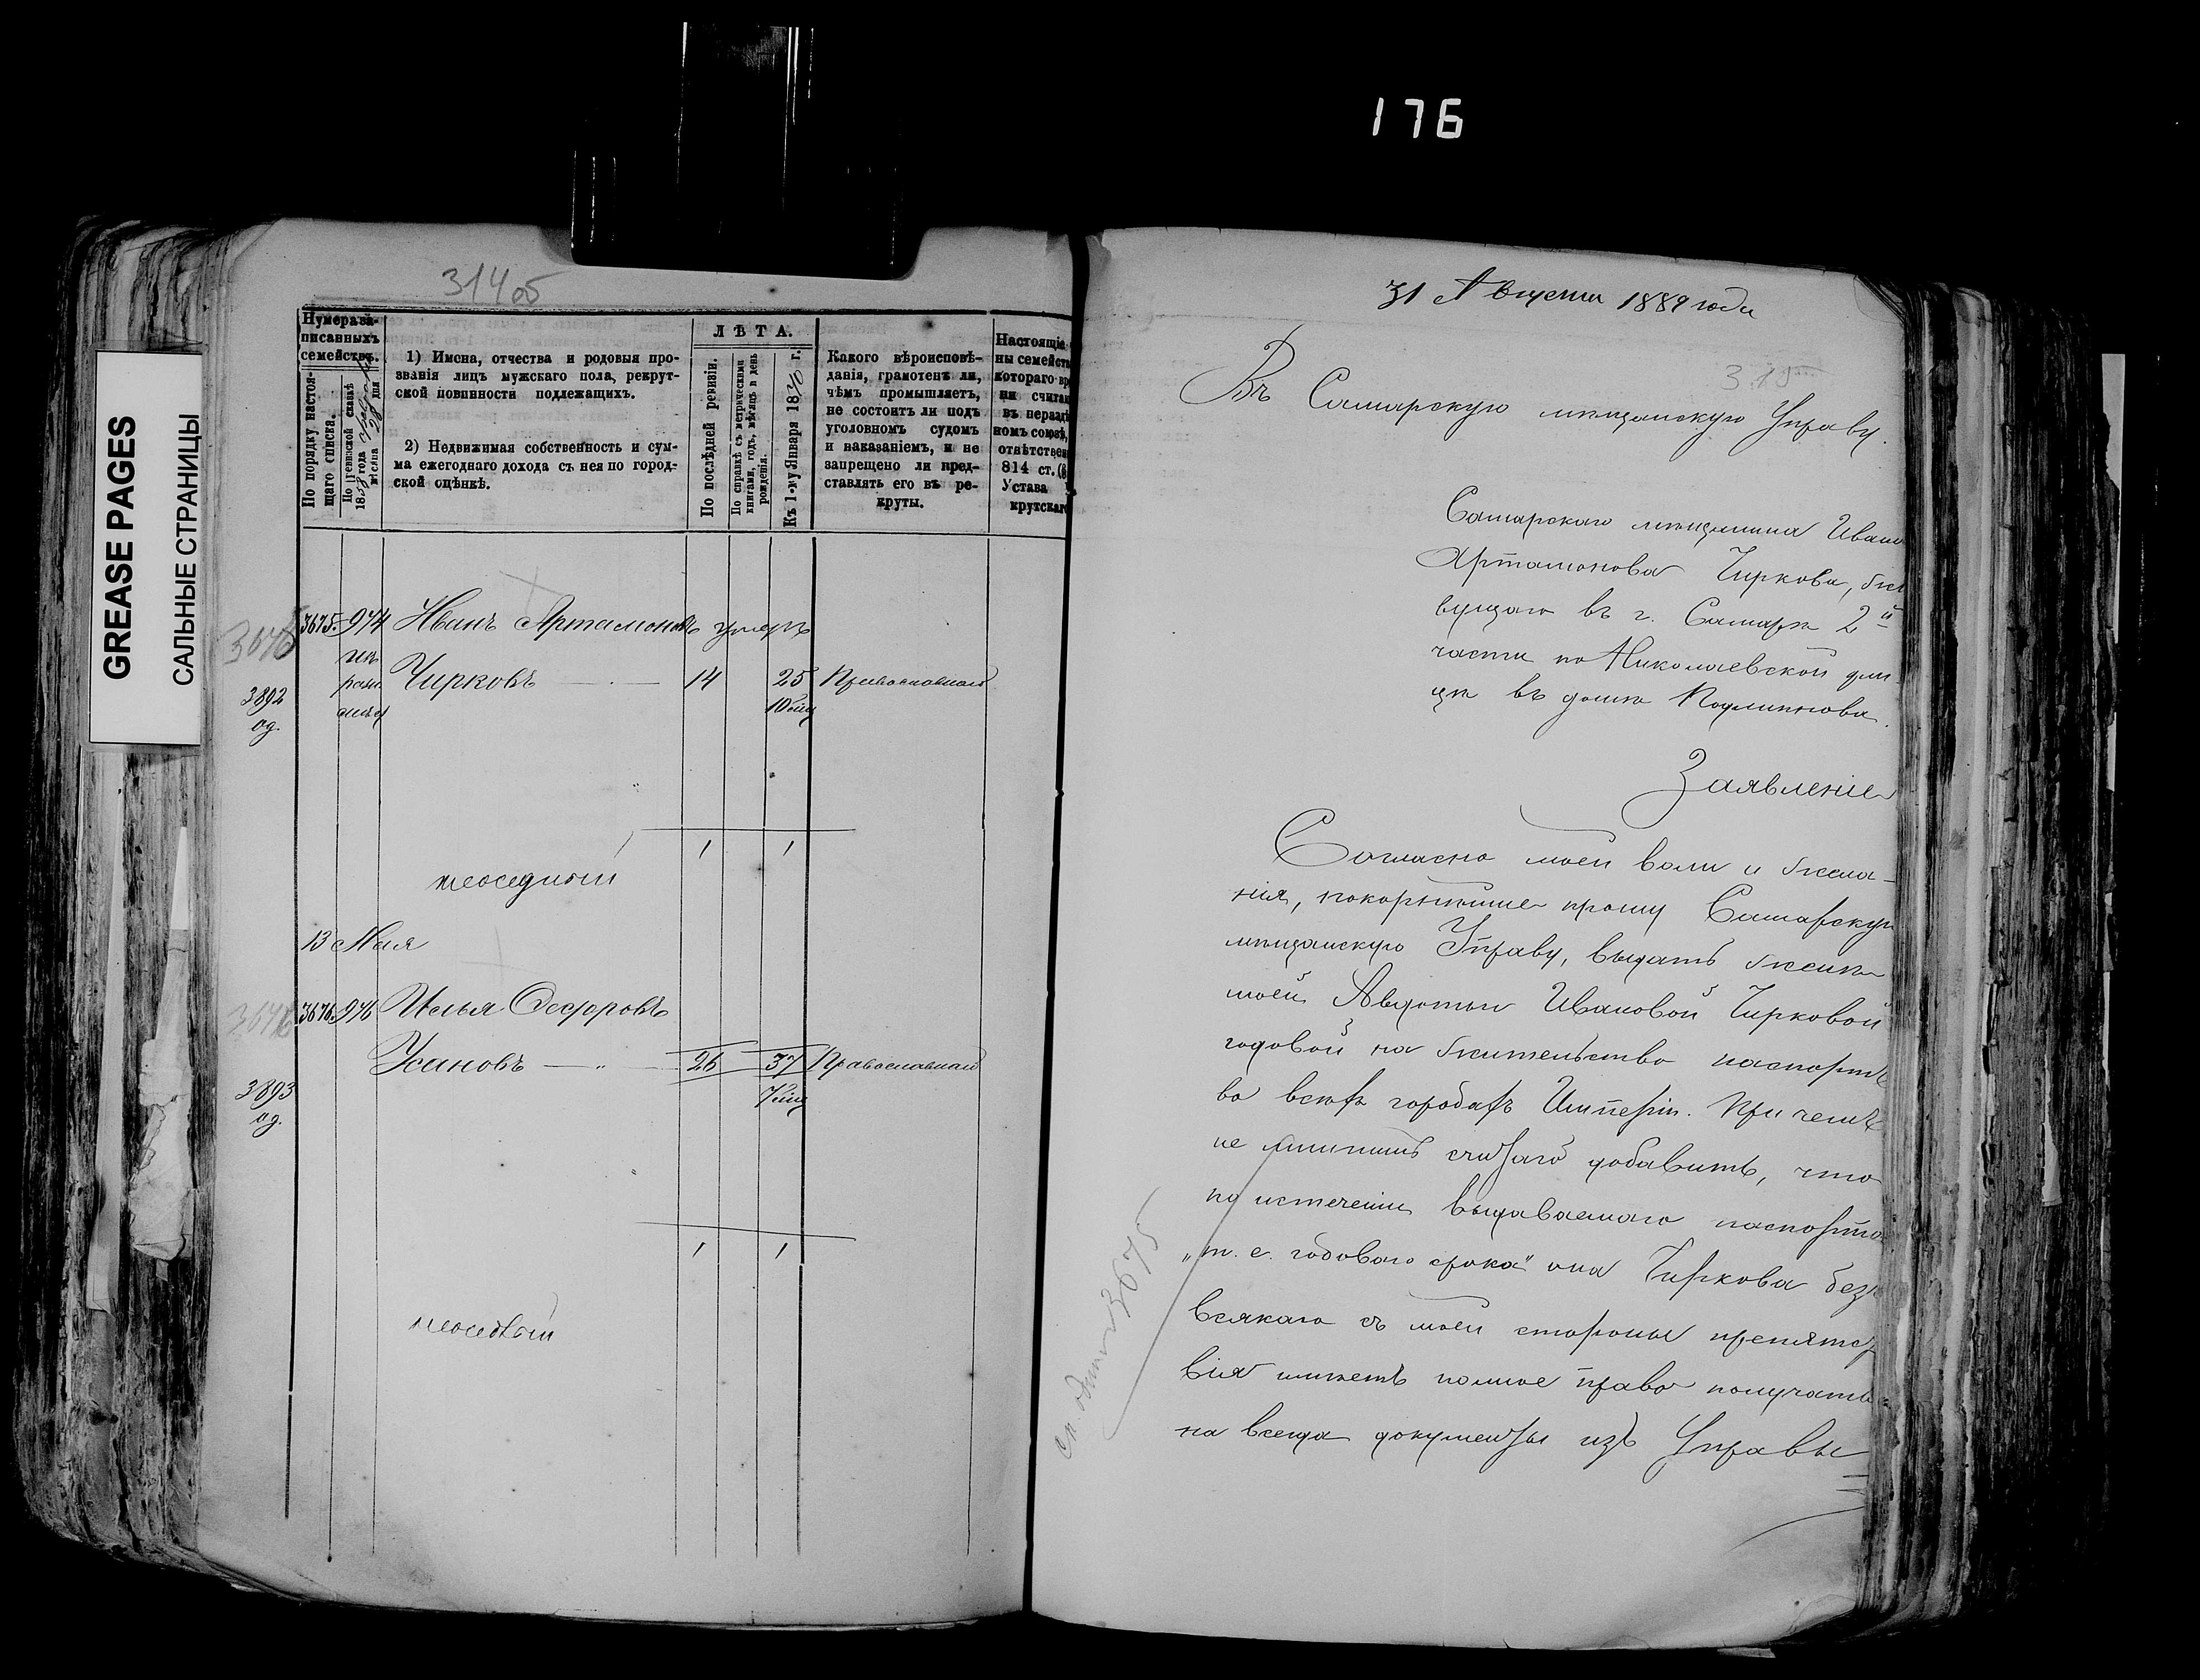 176
GREASE PAGES
САЛЬНЫЕ СТРАНИЦЫ
314 об
Нумера за-
писанныхъ
семействъ.
По порядку настоя-
щаго списка.
По ревизской сказкѣ
1858 года
мѣсяца 28 дня
1) Имена, отчества и родовыя про-
званія лицъ мужскаго пола, рекрут-
ской повинности подлежащихъ.
2) Недвижимая собственность и сум-
ма ежегоднаго дохода съ нея по город-
ской оцѣнкѣ.
ЛѢТА.
По послѣдней ревизіи.
По справкѣ съ метрическими
книгами, годъ, мѣсяцъ и день
рожденія.
Къ 1-му Января 1870 г.
Какого вѣроисповѣ-
данія, грамотенъ ли,
чѣмъ промышляетъ,
не состоитъ ли подъ
уголовномъ судомъ
и наказаніемъ, и не
запрещено ли пред-
ставлять его въ ре-
круты.
Настоящіе
ны семейст
котораго вр
ни счита
въ нераз
номъ союзѣ,
отвѣтствен
814 ст.
Устава
крутскаг
3675
3675. 974 Иванъ Артамоновъ умеръ
Чирковъ — 14 25 Православнаго
3892
од.
1 1
неоседлый
13 Мая
3676
3676. 976 Илья
Усановъ — " — 26 37 Православнаго
3893
од.
1 1
неоседлый
31 Августа 1889 года
315
Въ Самарскую мѣщанскую Управу.
Самарскаго мѣщанина Ивана
Артамонова Чиркова, жи
вущаго въ г. Самарѣ 2й
части по Николаевской ули
цѣ въ домѣ
Заявленіе
Согласно моей воли и жела-
нія, покорнѣйше прошу Самарскую
мѣщанскую Управу, выдать женѣ
моей Авдотьи Ивановой Чирковой
годовой на жительство паспортъ
во всѣхъ городахъ Имперіи. При чемъ
не лишнимъ считаю добавить, что
по истеченіи выдаваемаго паспорта
„т. е. годоваго срока" она Чиркова безъ
всякаго съ моей стороны препятс
вія имѣетъ полное право получать
на всегда документы изъ Управы
3675